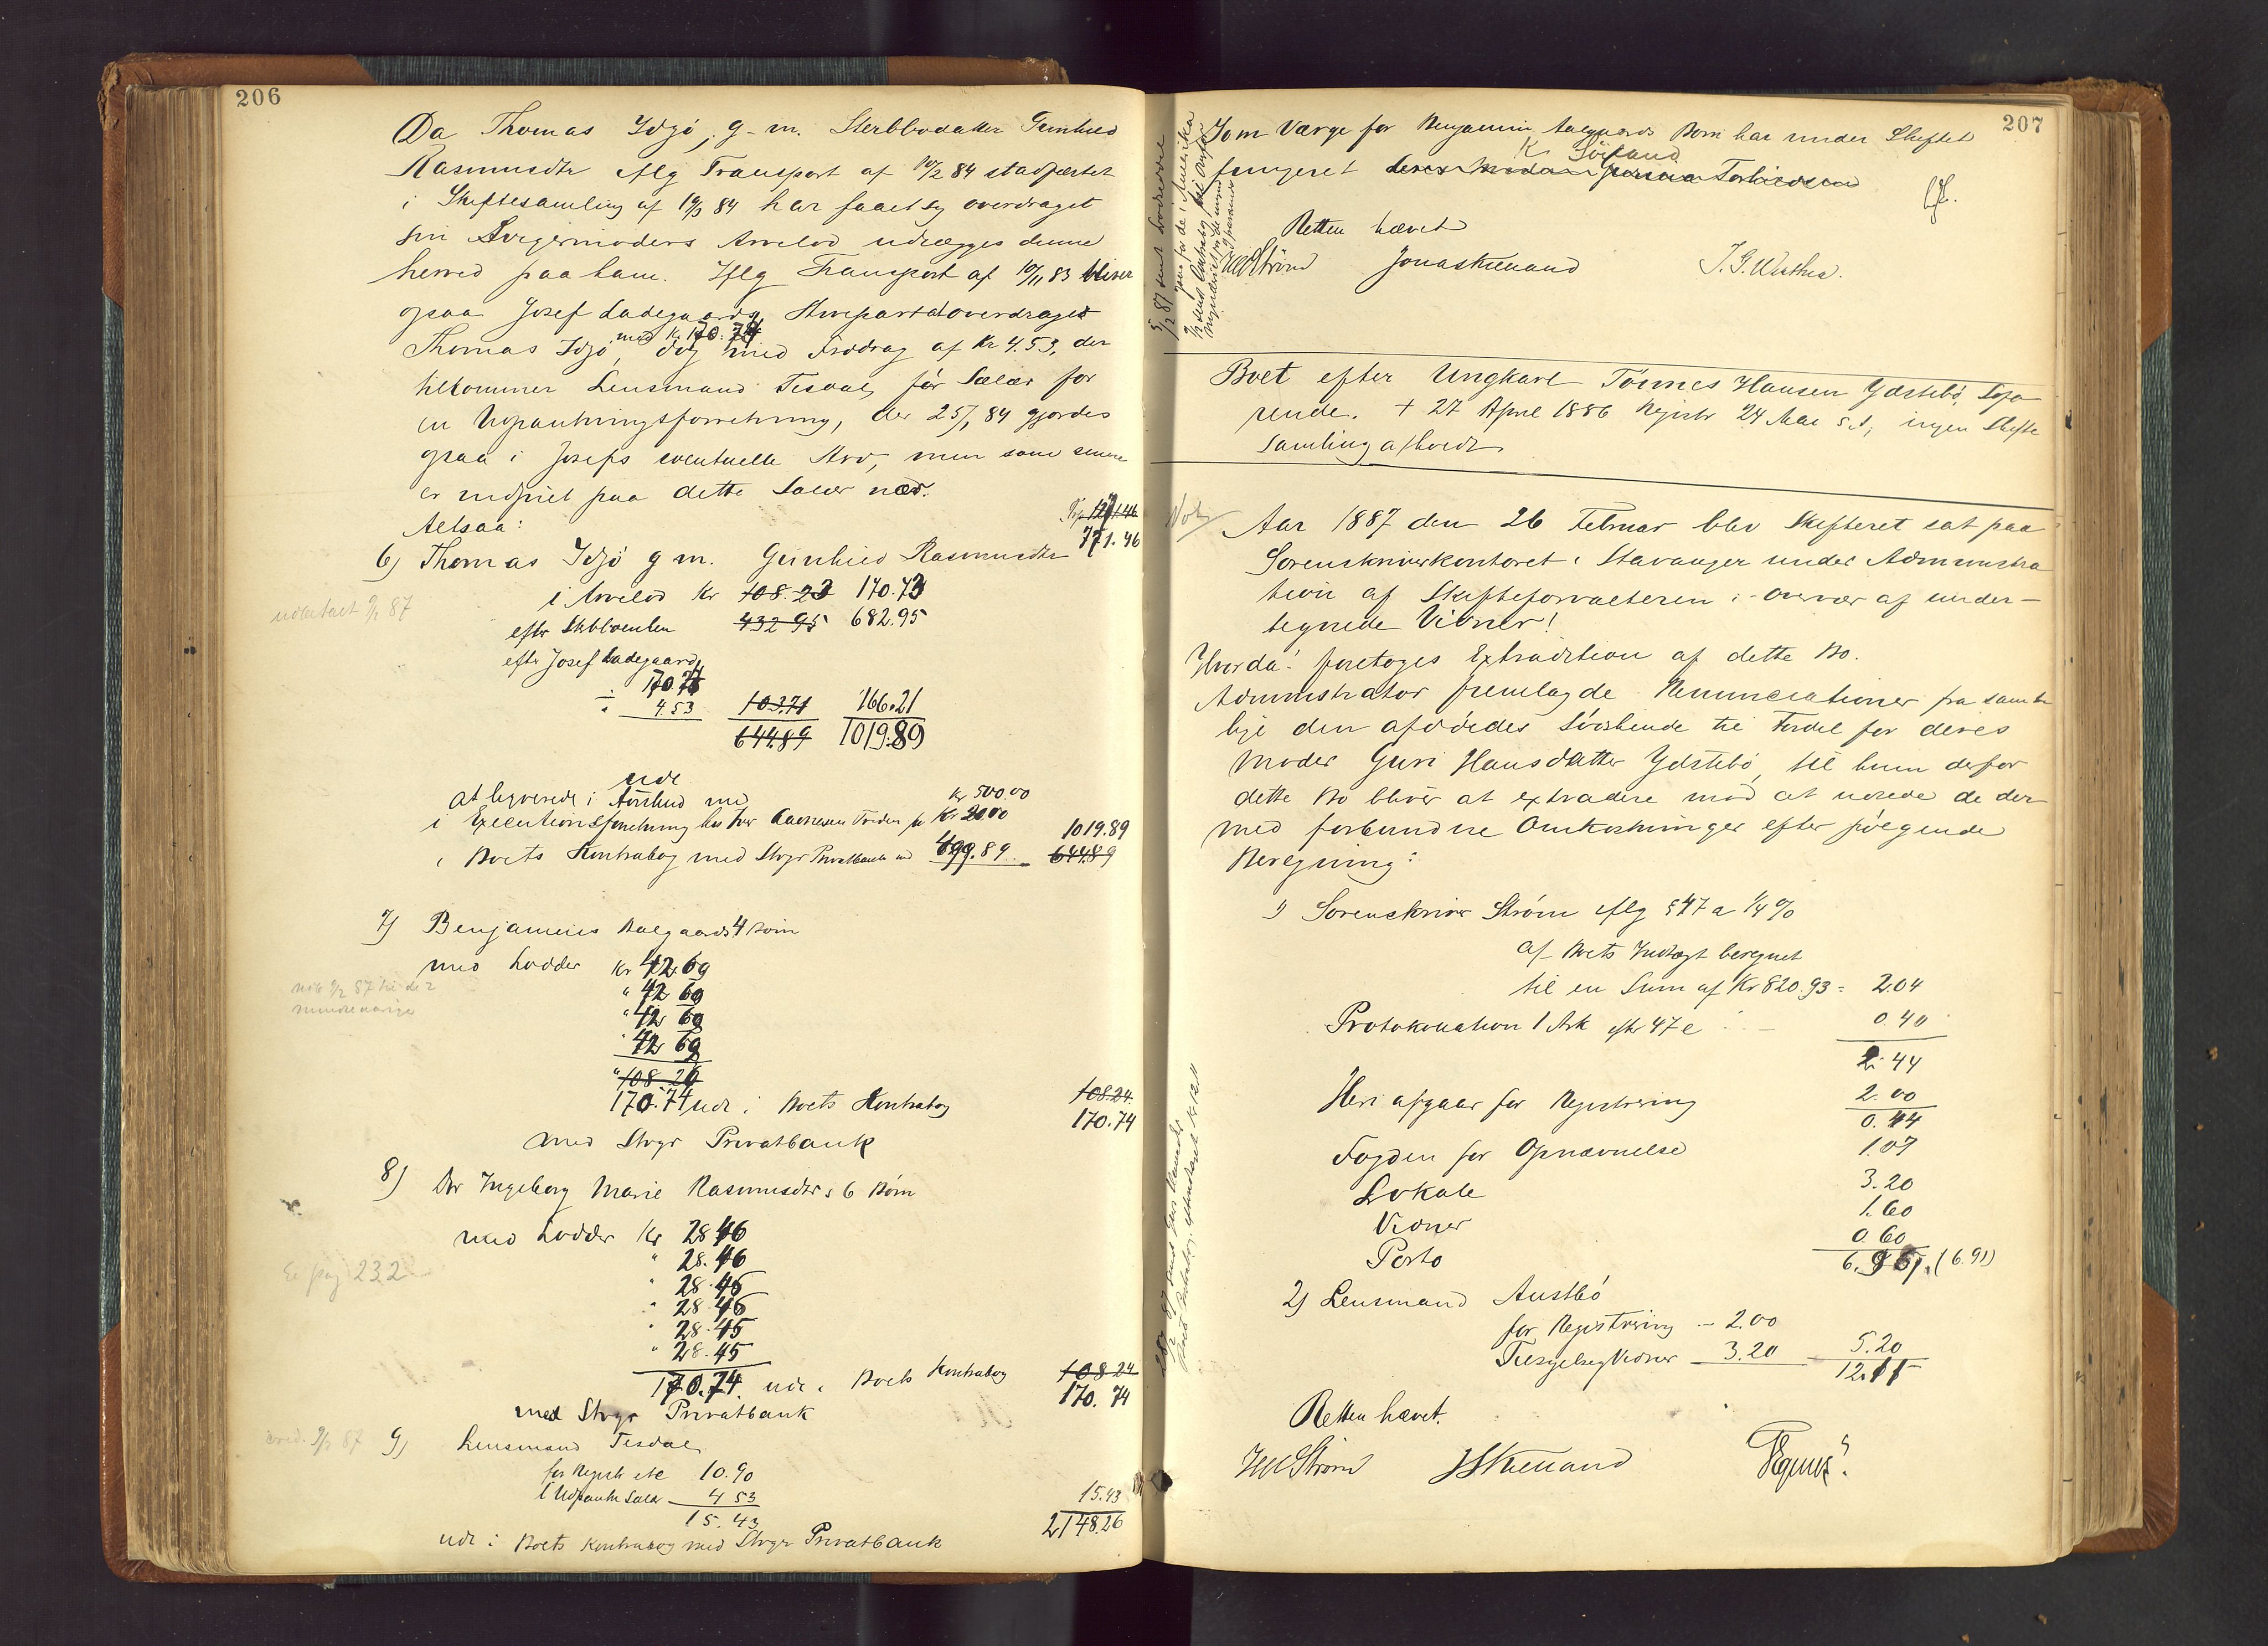 206
Da Thomas Idsö, g. m. Sterbbodatter Gunhild
Rasmusdtr iflg Transport af 10/2 84 stadfæstet
i Skiftesamling af 19/3 84 har faaet sig overdraget
sin Svigermoders Arvelod udlægges denne
herved paa ham. Iflg Transport af 10/11 83 bliver
ogsaa Josef Ladegaards Arvepart at overdrages
med Kr 170.74
Thomas Idsö, dog med Fradrag af Kr 4.53, der
tilkommer Lensmand Tesdal for Salær for
en Udpantningsforretning, der 25/1 84 gjordes
ogsaa i Josefs eventuelle Arv, men som senere
er indfriet paa dette Salær nær.
Altsaa:
771.46
6) Thomas Idsö g m. Gunhild Rasmusdtr
i Arvelod Kr 108.23 170.73
efter Stbboenken 432 95 682.95
efter Josef Ladegaard
170 74
÷ 4.53 103.71 166.21
644.89 1019.89
udbetalt 9/2 87
udl
at beroende i
Kr 500.00
i Executionsforretning hos Aanesen Kr 20.00
1019.89
i Boets Kontrabog med Stvgr Privatbank 499.89 644.89
7) Benjamins Aalgaards 4 Börn
med Lodder Kr 42 69
" 42 69
" 42 69
" 42 69
" 108 24
170.74 udl i Boets Kontrabog
108.24
170.74
med Stvgr Privatbank
8) Dör Ingeborg Marie Rasmusdtrs 6 Börn
med Lodder Kr 28 46
" 28.46
" 28.46
" 28.46
" 28.45
" 28.45
170.74. udl i Boets Kontrabog
108 24
170.74
med Stvgr Privatbank
Se pag 232
9) Lensmand Tesdal
for Regist etc 10.90
i Udpantn Salær 4 53
15.43
15.43
2148.26
udl i Boets Kontrabog med Stvgr Privatbank
207
Som Værge for Benjamin Aalgaards Börn har under Skiftet
K Söiland
fungeret deres
Retten hævet
Strøm Jonas Kielland
Boet efter Ungkarl Tönnes Hansen Ydstebö, Soga
rende. + 27 April 1886 Registr 24 Mai s. A, ingen Skifte
samling afholdt
Aar 1887 den 26 Februar blev Skifteret sat paa
Sorenskriverkontoret i Stavanger under Administra
tion af Skifteforvalteren i Overvær af under-
tegnede Vidner!
Hvorda: foretoges Extradition af dette Bo.
Administrator fremlagde Renunciationer fra samt
lige den afdödes Söskende til Fordel for deres
Moder Guri Hansdatter Ydstebö, til hun derfor
dette Bo bliver at extradere mod at udrede de der
med forbundne Omkostninger efter fölgende
Beregning:
1) Sorenskriver Strøm iflg § 47 a 1/4 %
af Boets Indtægt beregnet
til en Sum af Kr 820.93 = 2.04
Protokollation 1 Ark eftr 47 e 0.40
2.44
Heri afgaar for Registrering 2.00
0.44
Fogden for Opnævnelse 1.07
Lokale 3.20
Vidner 1.60
Porto 0.60
6.91. (6.91)
2) Lensmand Austbö
for Registrering – 2.00
Tilsigelse, Vidner 3.20 5.20
12.11
Retten hævet.
Strøm Kielland